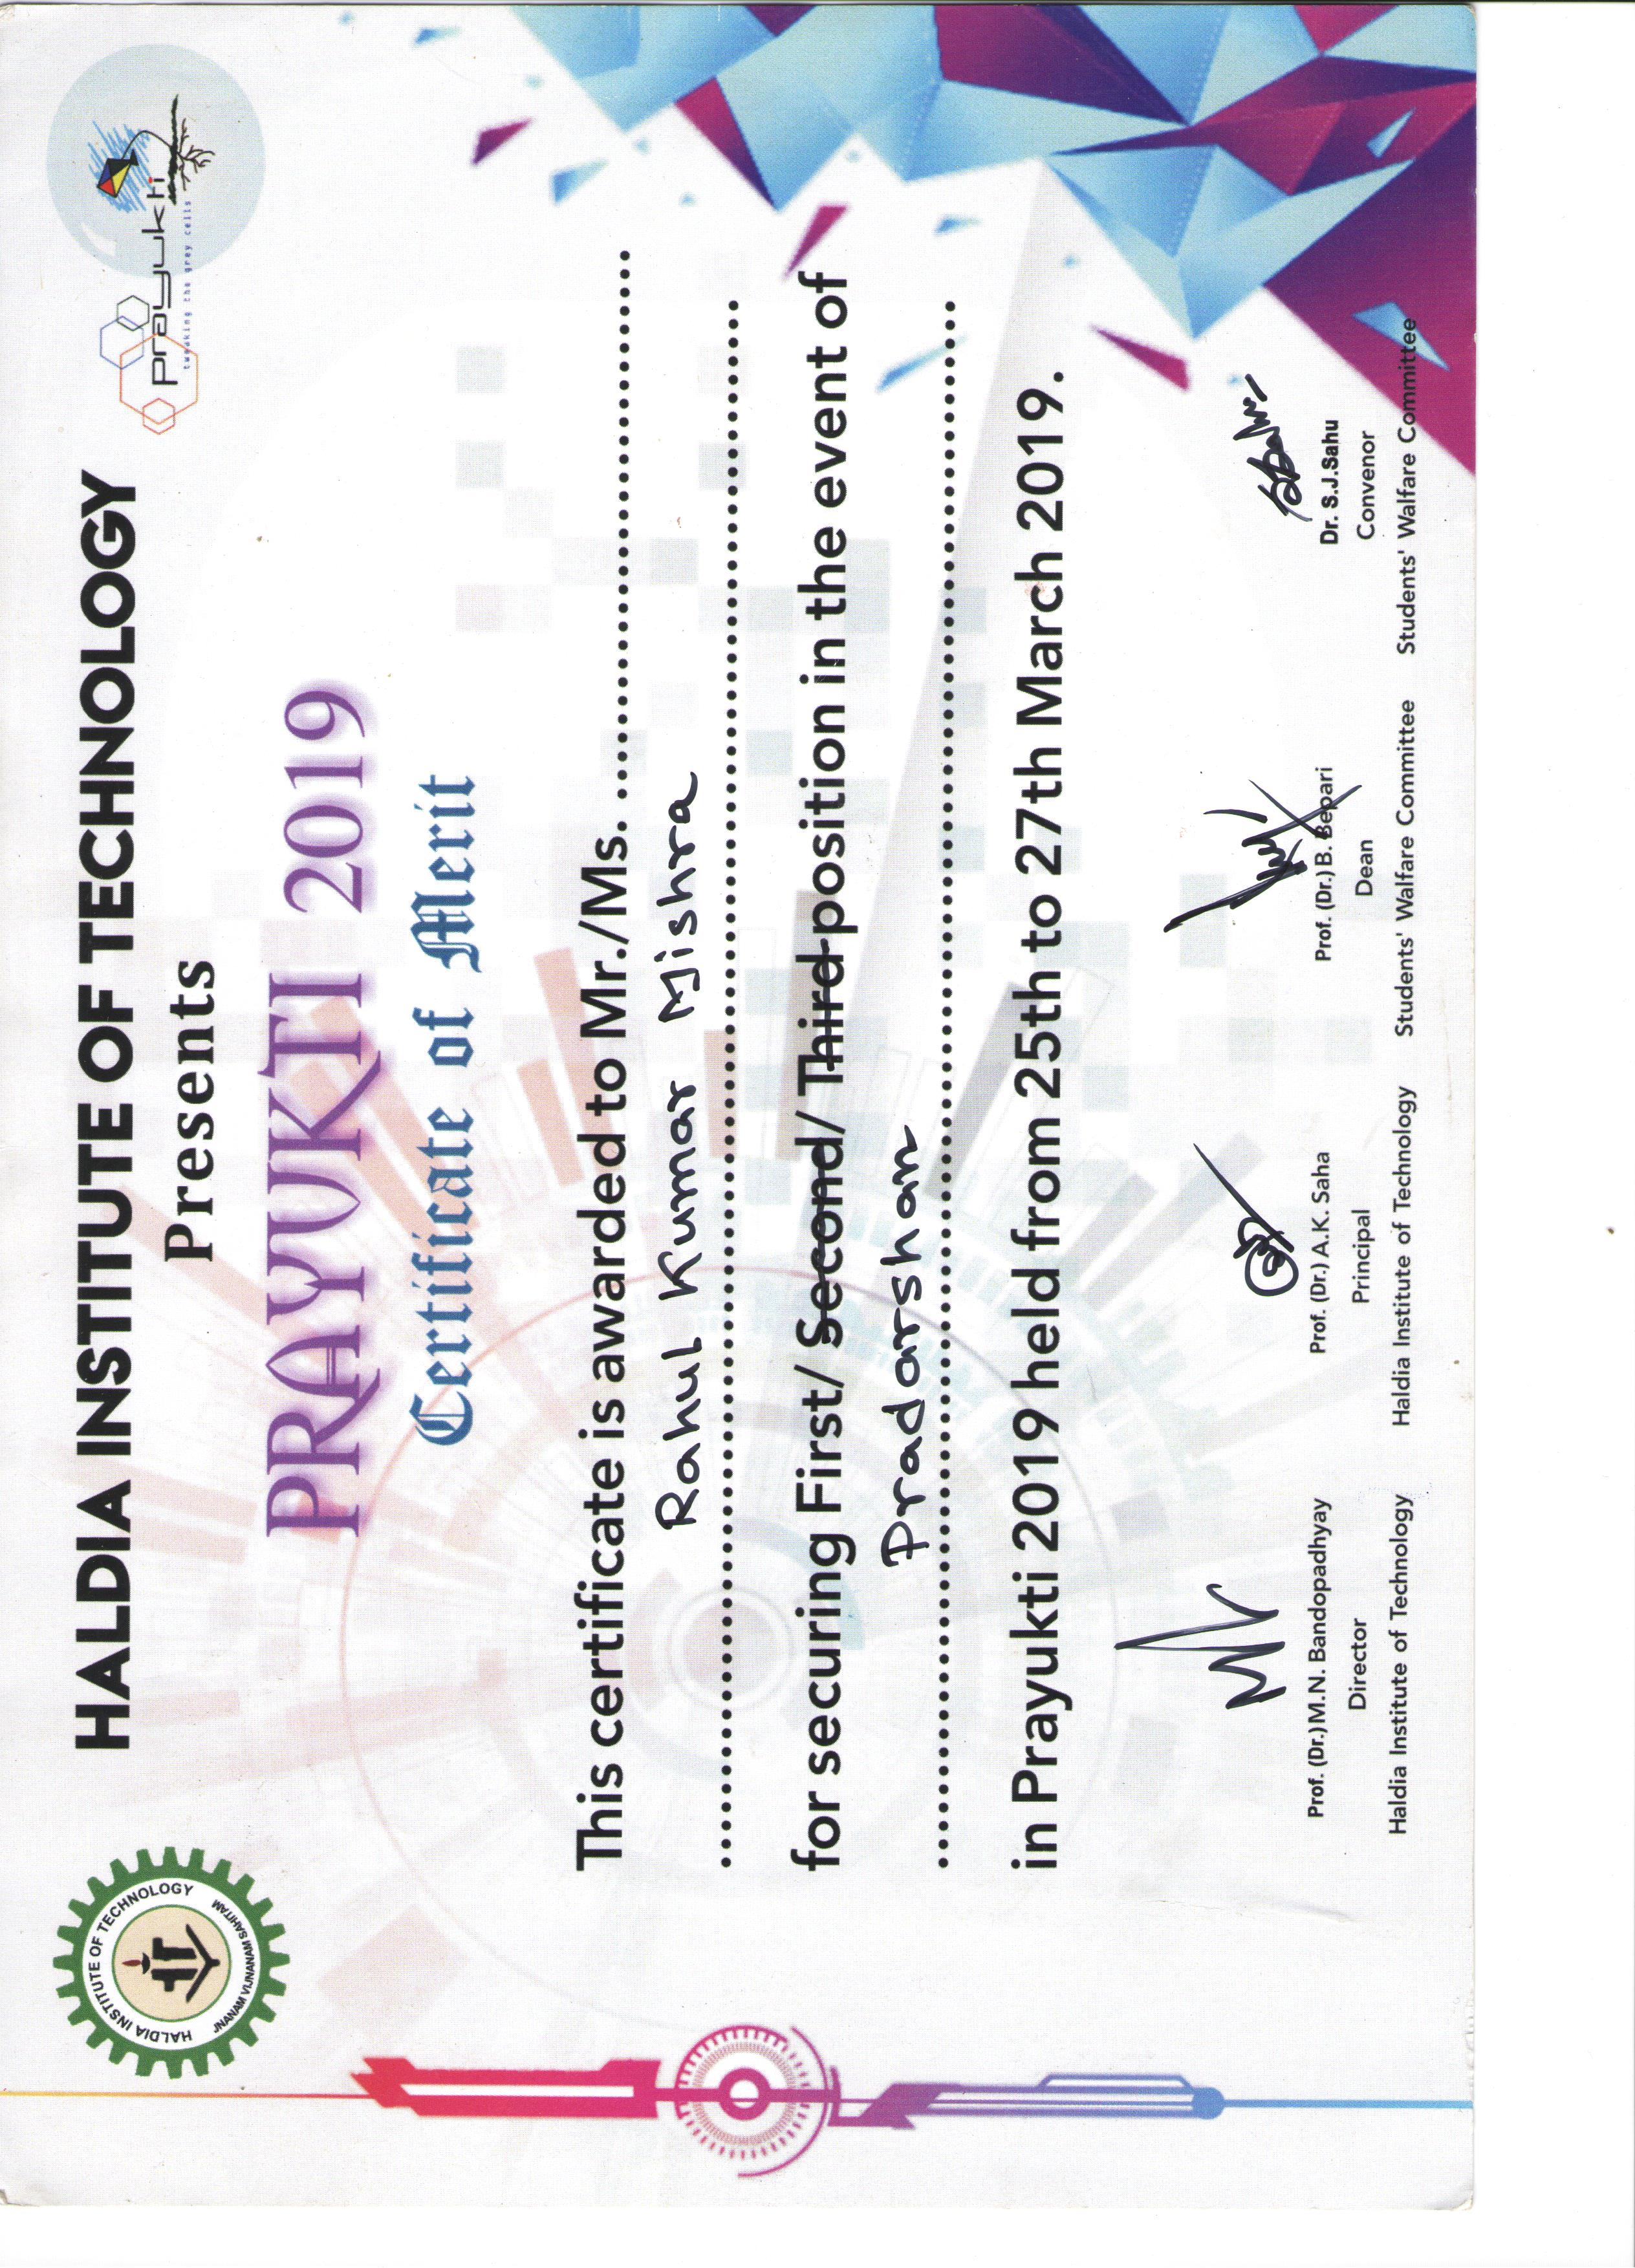 HALDIA INSTITUTE OF TECHNOLOGY
JNANAM VIJNANAM SAHITAM
HALDIA INSTITUTE OF TECHNOLOGY
Presents
prayukti
tweaking the grey cells
PRAYUKTI 2019
Certificate of Merit
This certificate is awarded to Mr./Ms. ..............................
Rahul Kumar Mishra
for securing First/ Second/ Third position in the event of
Pradarshan
in Prayukti 2019 held from 25th to 27th March 2019.
Prof. (Dr.) M.N. Bandopadhyay
Director
Haldia Institute of Technology
Prof. (Dr.) A.K. Saha
Principal
Haldia Institute of Technology
Prof. (Dr.) B. Bepari
Dean
Students' Walfare Committee
Dr. S.J.Sahu
Convenor
Students' Walfare Committee